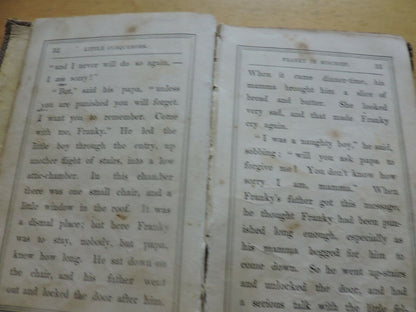 32 LITTLE CONQUERORS.
"and I never will do so again,—
I am sorry!"
"But," said his papa, "unless
you are punished you will forget.
I want you to remember. Come
with me, Franky." He led the
little boy through the entry, up
another flight of stairs, into a low
attic-chamber. In this chamber
there was one small chair, and a
little window in the roof. It was
a dismal place; but here Franky
was to stay, nobody but papa
knew how long. He sat down on
the chair, and his father went
out and locked the door after him.
FRANKY IN MISCHIEF. 33
When it came dinner-time, his
mamma brought him a slice of
bread and butter. She looked
very sad, and that made Franky
cry again.
"I was a naughty boy," he said,
sobbing; "will you ask papa to
forgive me? You don't know how
sorry I am, mamma." When
Franky's father got this message,
he thought Franky had been pun-
ished long enough, especially as
his mamma begged for him to
come down. So he went up-stairs
and unlocked the door, and had
a serious talk with the little